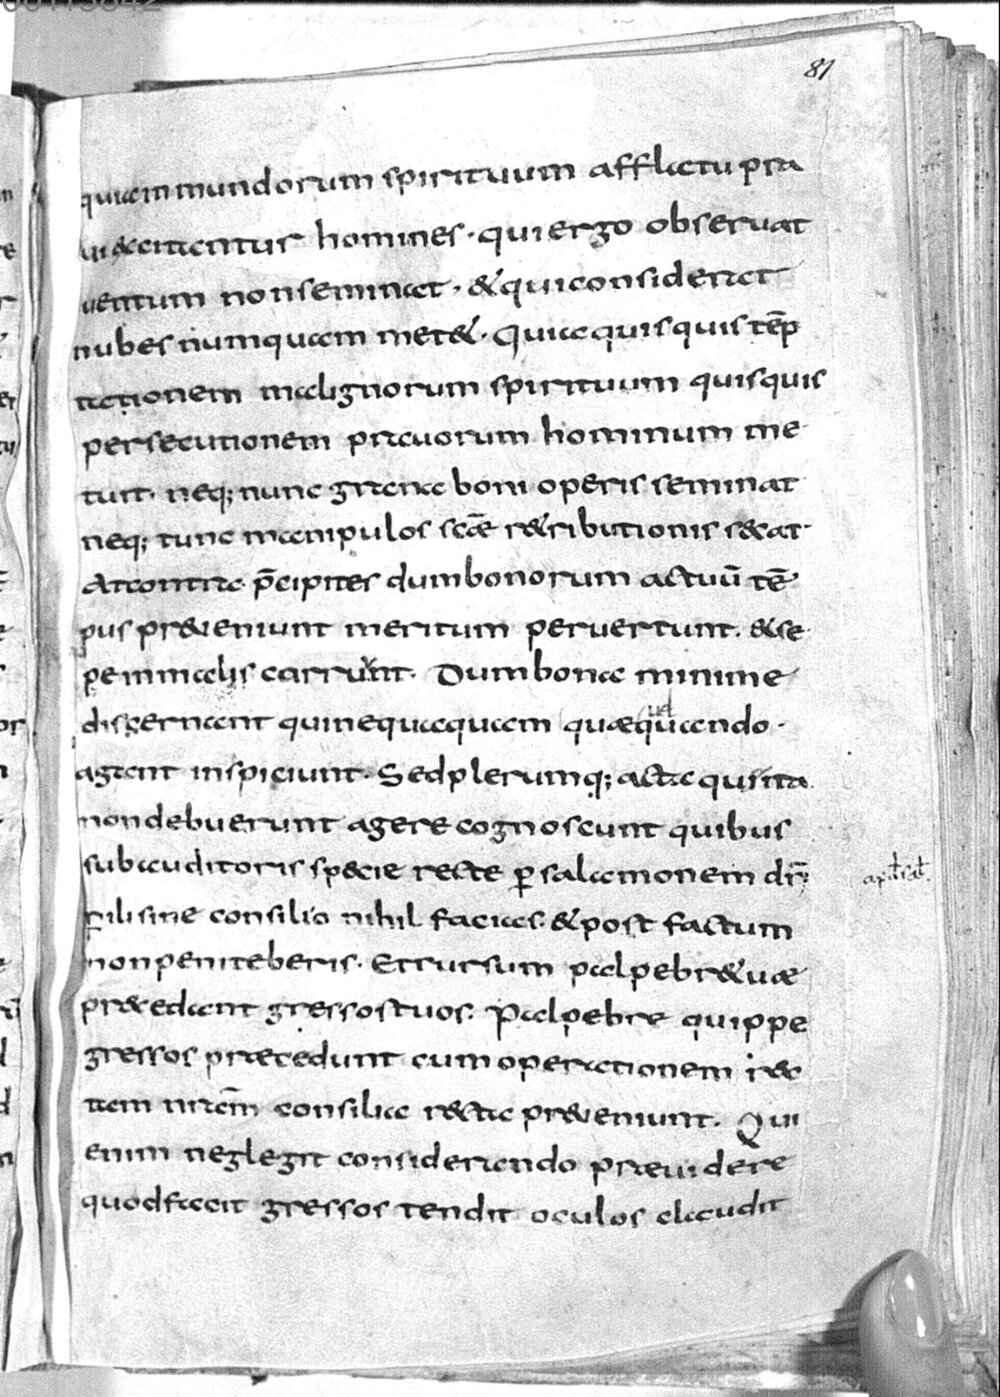 81
quiinmundorum spirituum afflactu pra
ui excitantur homines · qui ergo obseruat
uentum non seminat · & qui considerat
nubes numquam met& · Quia quisquis tēp
tationem malignorum spirituum quisquis
persecutionem prauorum hominum me
tuit · neq; nunc grana boni operis seminat
neq; tunc manipulos scæ r&ributionis s&cat ·
At contra · p̄cipites dum bonorum actuū tē
pus præueniunt meritum peruertunt . & se
pe in malis carrunt · Dum bona minime
discernant quinequaquam quæ quando ·
agant inspiciunt · Sed plerumq; acta qui ita
non debuerunt agere cognoscunt quibus
sub auditoris specie recte p salamonem dr̄
Fili sine consilio nihil facias · & post factum
non peniteberis · Et rursum palpebr& uæ
præcedant gressos tuos · Palpebre quippe
gressos præcedunt cum operationem rec
tam nr̄am consilia recta præueniunt . Qui
enim neglegit considerando præuidere
quod facit gressos tendit oculos claudit